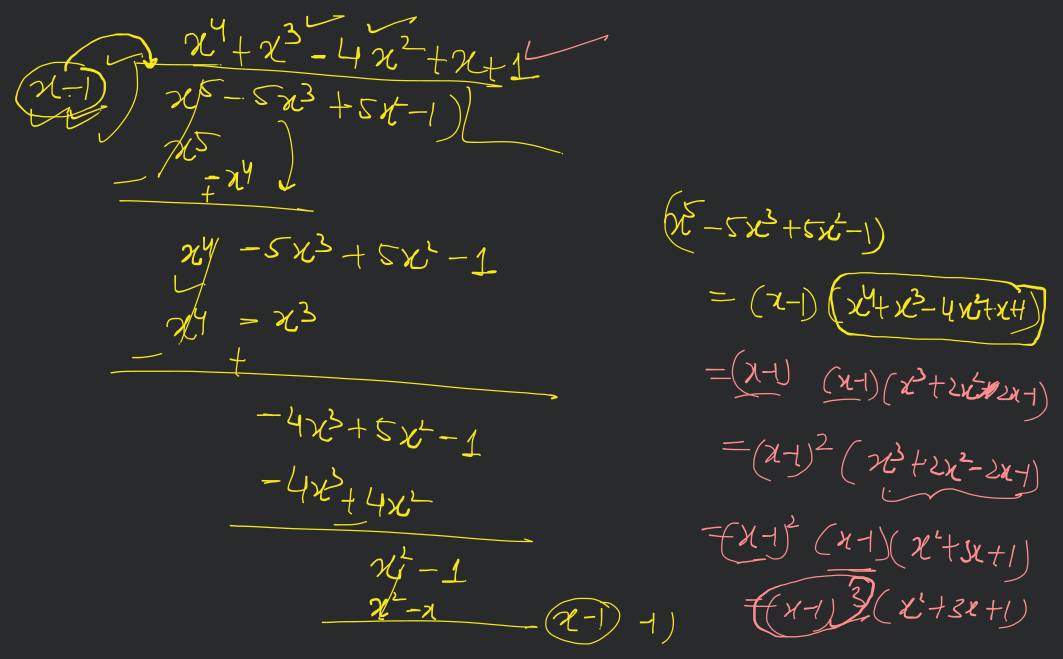 x⁴ + x³ - 4x² + x + 1
x-1
x⁵ - 5x³ + 5x² - 1)
x⁵
- x⁴
- +
x⁴ - 5x³ + 5x² - 1
x⁴ - x³
- +
-4x³ + 5x² - 1
-4x³ + 4x²
-
x² - 1
x² - x
x-1 -1)
(x⁵ - 5x³ + 5x² - 1)
= (x-1) (x⁴ + x³ - 4x² + x + 1)
= (x-1) (x-1) (x³ + 2x² - 2x - 1)
= (x-1)² (x³ + 2x² - 2x - 1)
= (x-1)² (x-1) (x² + 3x + 1)
= (x-1)³ (x² + 3x + 1)